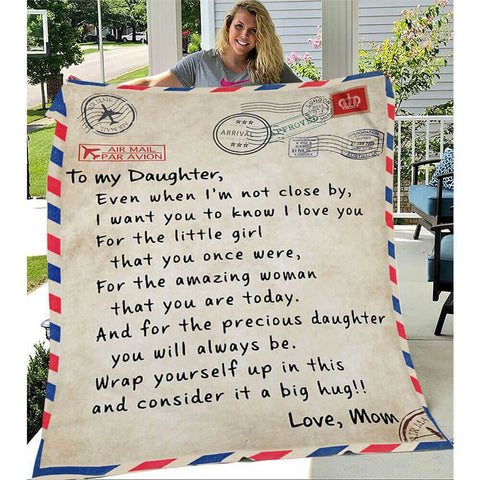 ARRIVAL
APPROVED
LONDON
AIR MAIL
PAR AVION
To my Daughter,
Even when I'm not close by,
I want you to know I love you
For the little girl
that you once were,
For the amazing woman
that you are today.
And for the precious daughter
you will always be.
Wrap yourself up in this
and consider it a big hug!!
Love, Mom